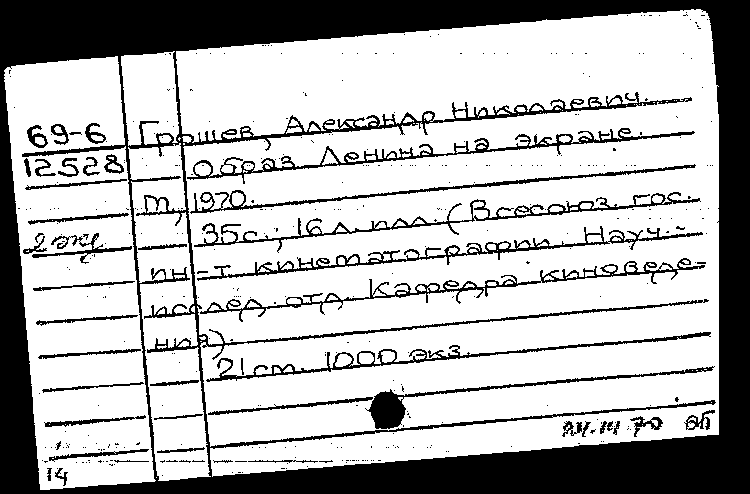 69-6 Грошев, Александр Николаевич.
12528 Образ Ленина на экране.
М, 1970.
2 экз 35с.; 16 л. илл. (Всесоюз. гос.
ин-т кинематографии. Науч.-
исслед. отд. Кафедра киноведе-
ния).
21 см. 1000 экз.
14